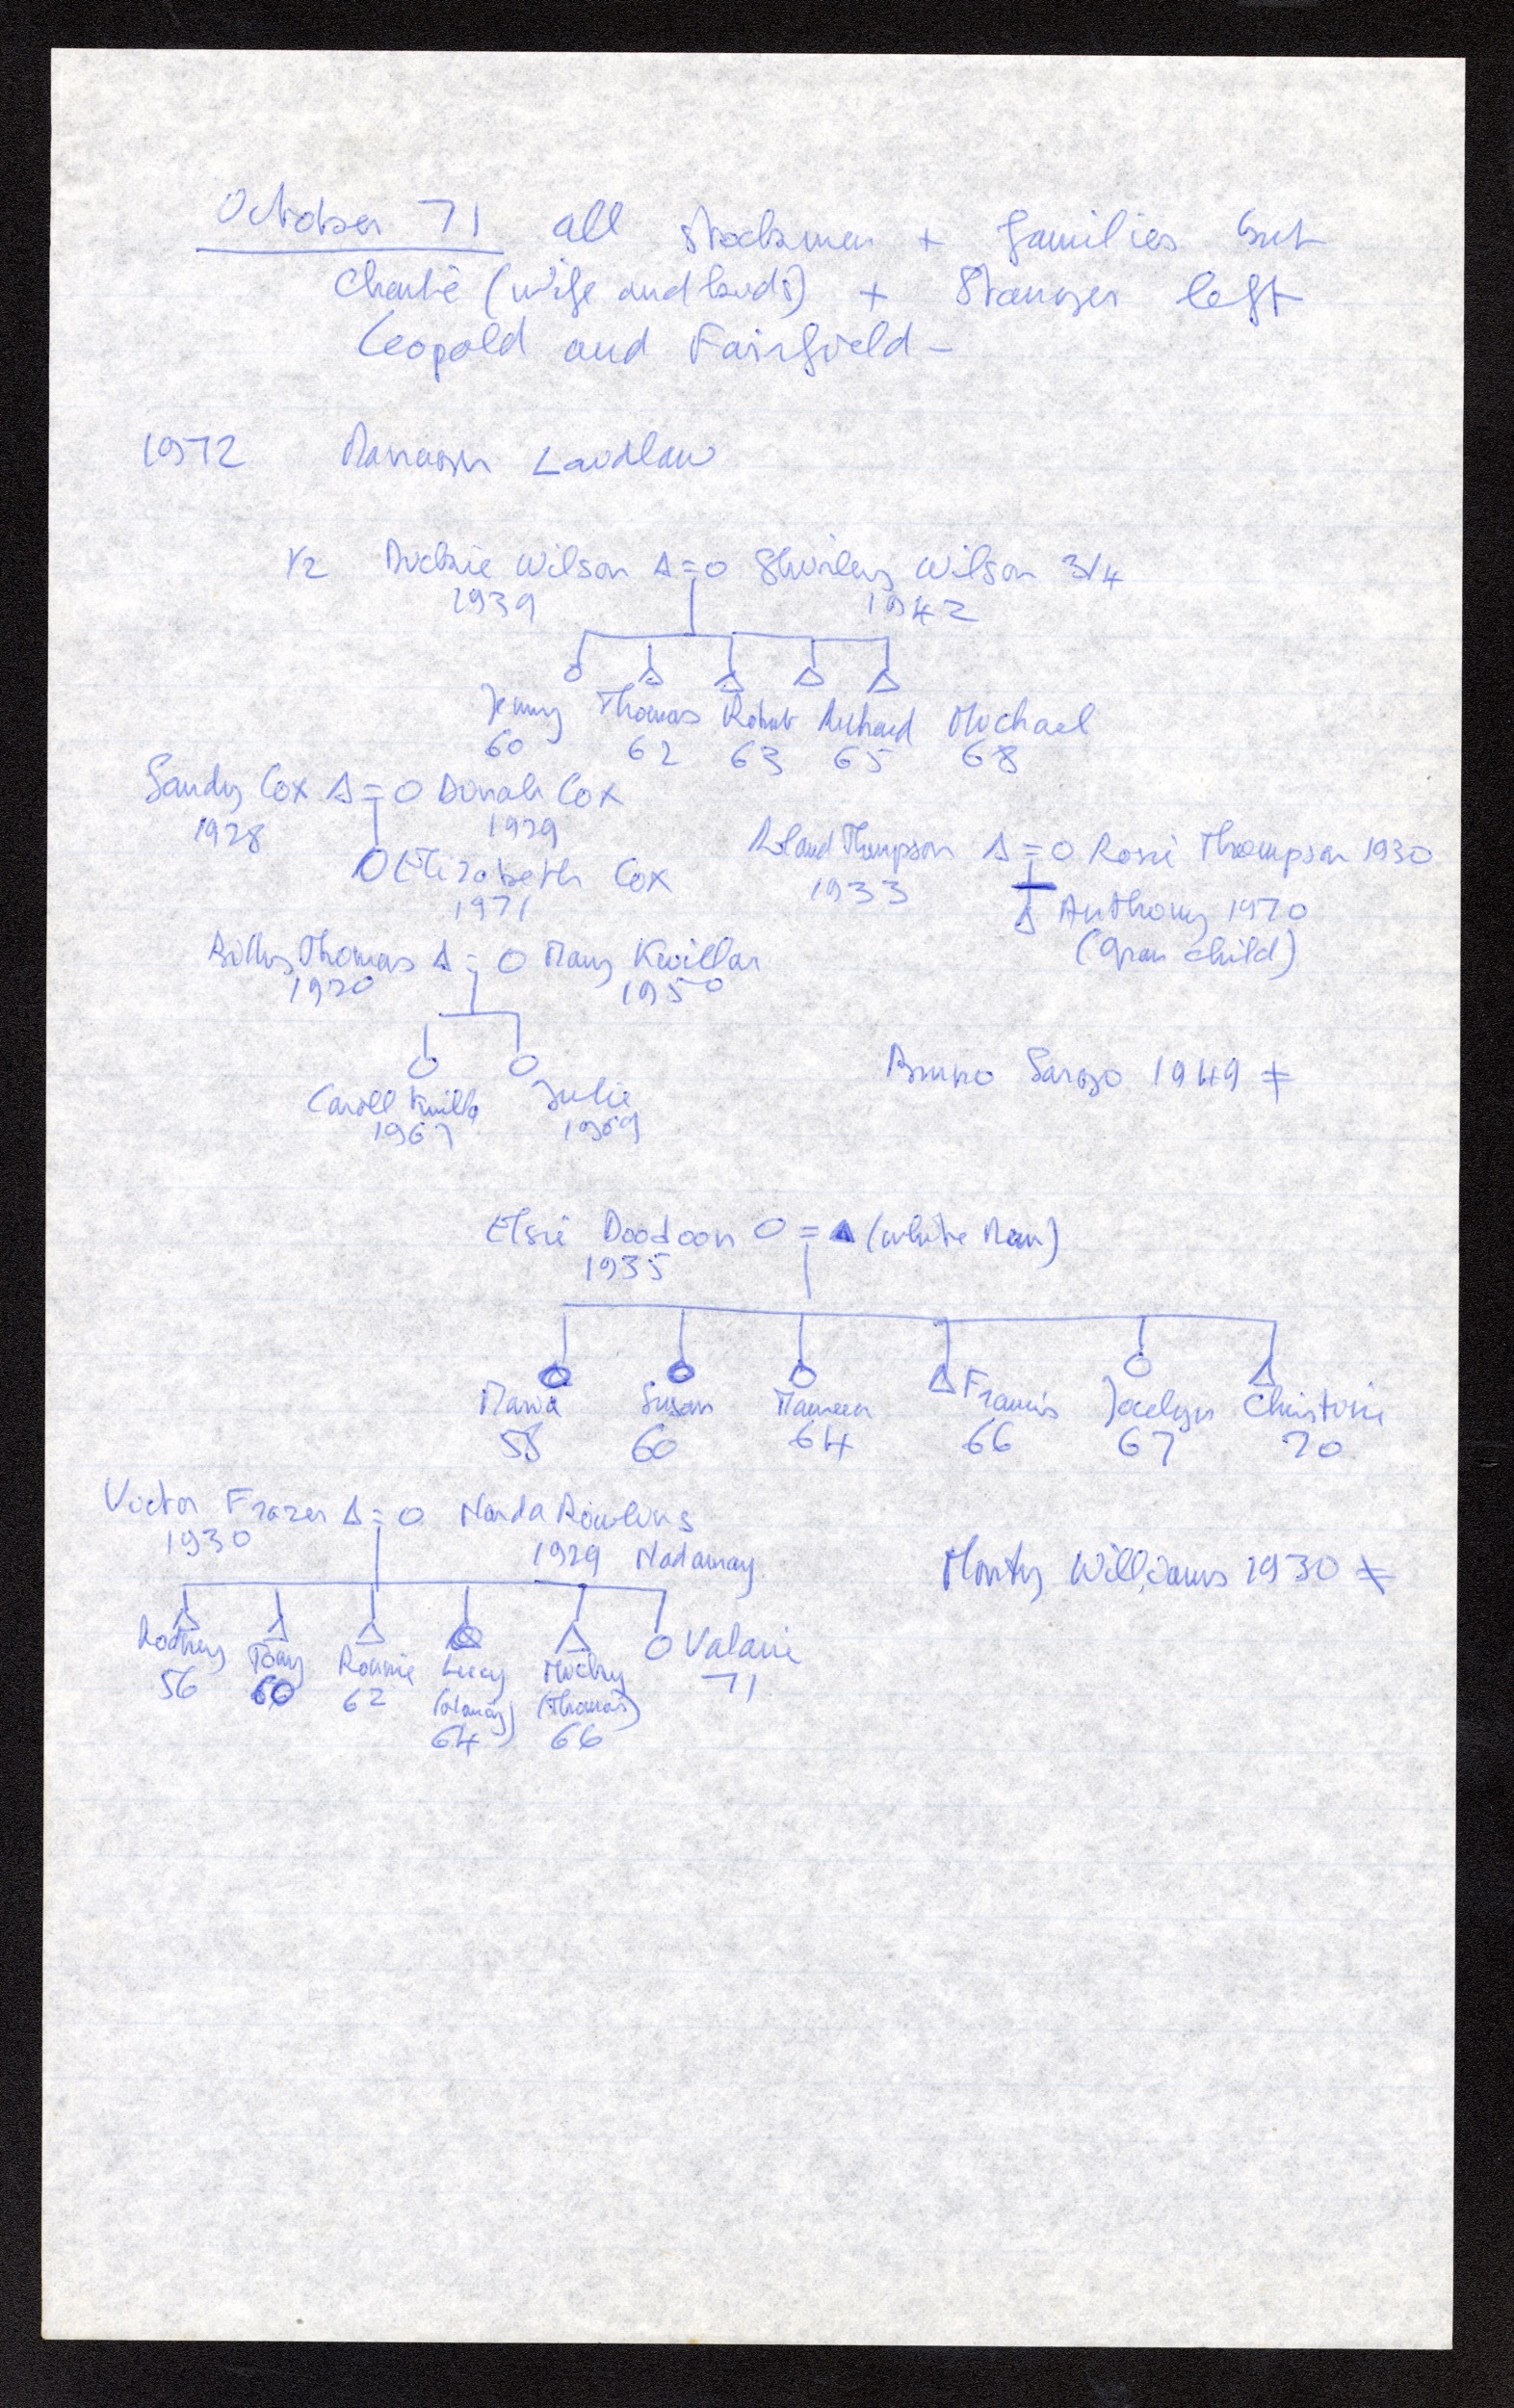 October 71 all stockmen + families but
Charlie (wife and kids) + Stanger left
Leopold and Fairfield -
1972 Manager Laidlaw
1/2 Duckie Wilson Δ=O Shirley Wilson 3/4
1939 1942
Jenny Thomas Robert Richard Michael
60 62 63 65 68
Sandy Cox Δ=O Donah Cox
1928 1929
O Elizabeth Cox
1971
Roland Thompson Δ=O Rosie Thompson 1930
1933
Δ Anthony 1970
(gran child)
Billy Thomas Δ=O Mary Kwillar
1920 1950
Caroll Julie
1967 1969
Bruno 1949 ≠
Elsie Doodoon O=▲ (white Man)
1935
Maria Susan Maureen Francis Jocelyn
58 60 64 66 67 70
Victor Frazer Δ=O Narda Rowlins
1930 1929
Rodney Tony Ronnie Lucy Micky Valarie
56 60 62 (Thomas) 71
64 66
Monty Williams 1930 ≠